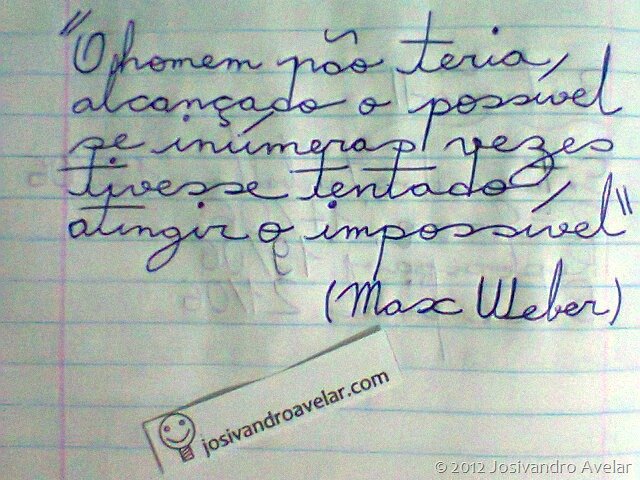 "O homem não teria
alcançado o possível
se inúmeras vezes
tivesse tentado
atingir o impossível"
(Max Weber)
josivandroavelar.com
© 2012 Josivandro Avelar